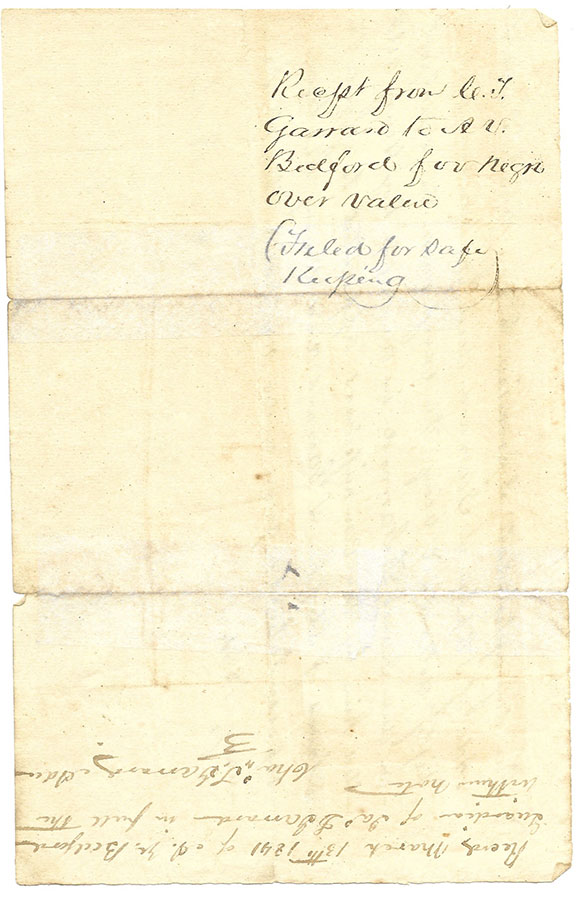 Recept from C. T.
Garrard to A V.
Bedford for negro
over value
(Filed for Safe
Keeping
Recd, March 13th 1841 of A. V. Bedford
Guardian of Jas D Garrard in full the
within note
Chas. T. Garrard